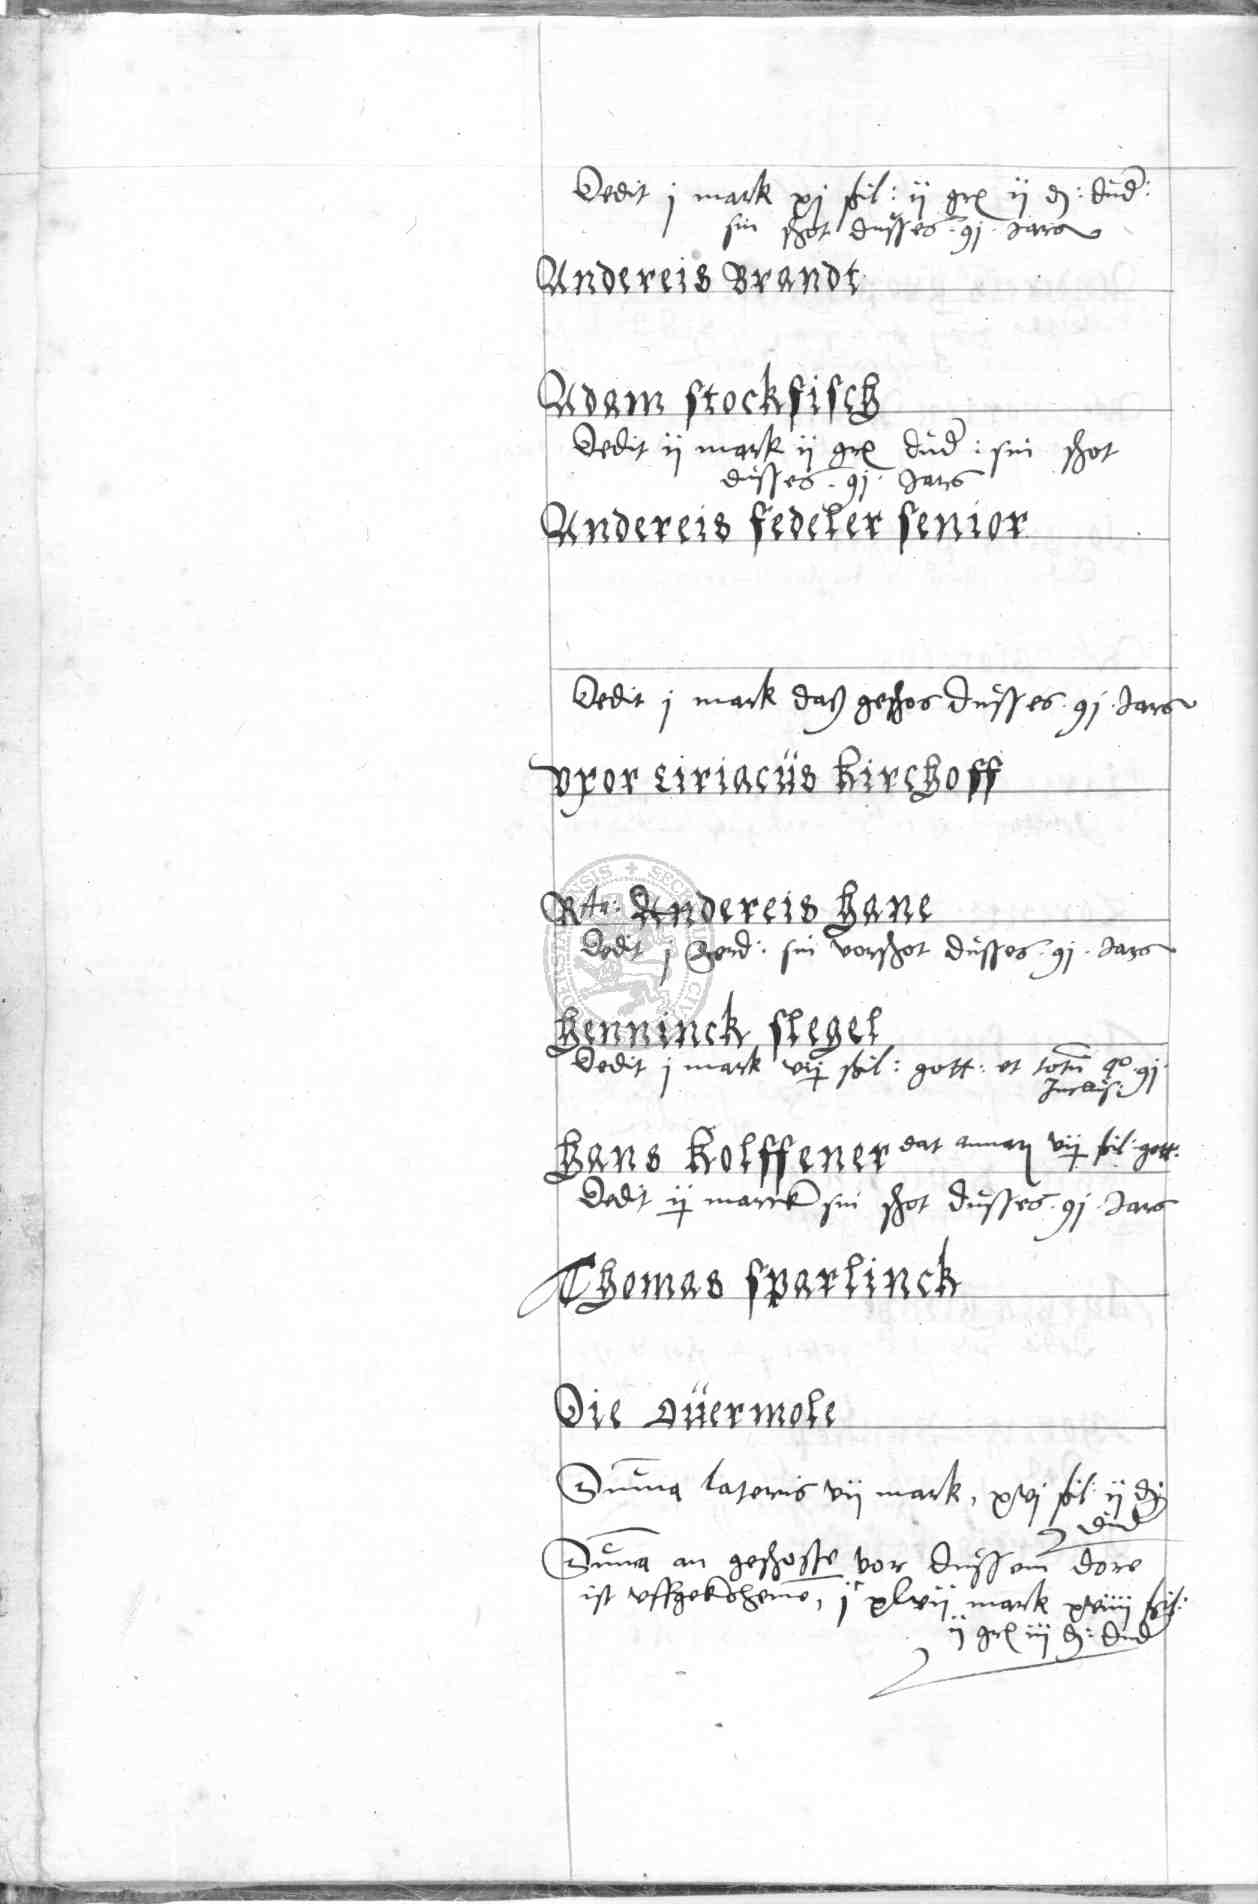 Dedit j mark xj ßil: ij gr ij d: Dud:
sin schot dusses · 91 · Jars
Andereis Brandt
Adam stockfisch
Dedit ij mark ij gr Dud: sin schot
dusses · 91 · Jars
Andereis fedeler senior
Dedit j mark daß geschos dusses · 91 · Jars
vxor Ciriacüs Kirchoff
Andereis Hane
Dedit j ferd: sin vorschot dusses · 91 · Jars
Henninck slegel
Dedit j mark ßil: gott: et totu 91
Inclus:
Hans Kolffener dat ßil: gott:
Dedit ij marck sin schot dusses · 91 · Jars
Thomas sparlinck
Die Auermole
Suma lateris vij mark, xvj ßil ij d
Dud
Suma an geschosse vor dussem dore
ist vffgekohmene, jc xlvij mark xviiij ßil:
ij gr iij d: Dud